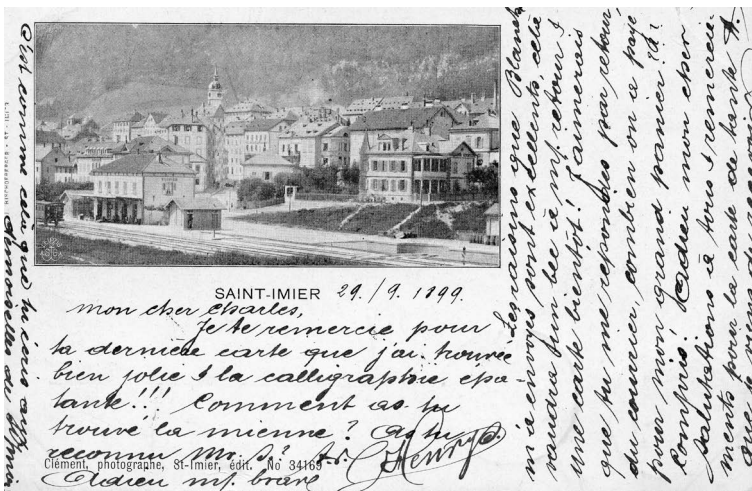 SAINT-IMIER 29./9. 1899.
mon cher Charles,
Je te remercie pour
ta dernière carte que j'ai trouvée
bien jolie & la calligraphie épa-
tante!!! Comment as-tu
trouvé la mienne? As-tu
reconnu Mr. S?
Henry
Clément, photographe, St-Imier, édit. No 34169
Adieu mf. brave
Les raisins que Blanche
m'a envoyés sont excellents, cela
vaudra un bec à mf. retour &
Une carte bientôt! J'aimerais
que tu me répondes par retour
du courrier, combien on a payé
pour mon grand panier?
Compris! Adieu mon cher
salutations à tous & remercie-
ments pour la carte de tante
C'est comme cela que tu